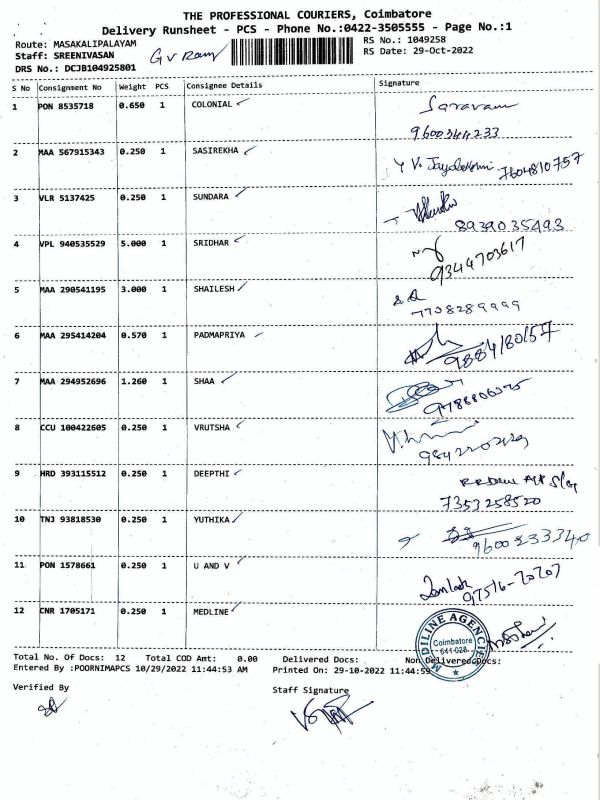 THE PROFESSIONAL COURIERS, Coimbatore
Delivery Runsheet - PCS - Phone No.:0422-3505555 - Page No.:1
Route: MASAKALIPALAYAM RS No.: 1049258
Staff: SREENIVASAN G V Ram RS Date: 29-Oct-2022
DRS No.: DCJB104925801
S No Consignment No Weight PCS Consignee Details Signature
1 PON 8535718 0.650 1 COLONIAL Saravanan
9600344233
2 MAA 567915343 0.250 1 SASIREKHA 7604810757
3 VLR 5137425 0.250 1 SUNDARA
8939035493
4 VPL 940535529 5.000 1 SRIDHAR
9344703617
5 MAA 290541195 3.000 1 SHAILESH
7708289999
6 MAA 295414204 0.570 1 PADMAPRIYA
9884180157
7 MAA 294952696 1.260 1 SHAA
8 CCU 100422605 0.250 1 VRUTSHA
9 HRD 393115512 0.250 1 DEEPTHI
7353258520
10 TNJ 93818530 0.250 1 YUTHIKA
9600533340
11 PON 1578661 0.250 1 U AND V
97516-70707
12 CNR 1705171 0.250 1 MEDLINE
MEDILINE AGENCIES
Coimbatore
641 028
Total No. Of Docs: 12 Total COD Amt: 0.00 Delivered Docs: Non Delivered Docs:
Entered By :POORNIMAPCS 10/29/2022 11:44:53 AM Printed On: 29-10-2022 11:44:59
Verified By Staff Signature